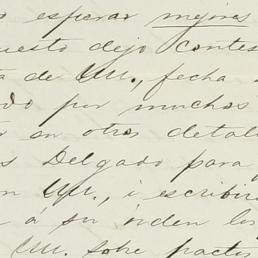 o esperar mejoras
uesto dejo contes
a de UU., fecha
do por muchos
en otros detal
s Delgado para
n UU., i escribir
a á su órden los
UU. sobre pactos